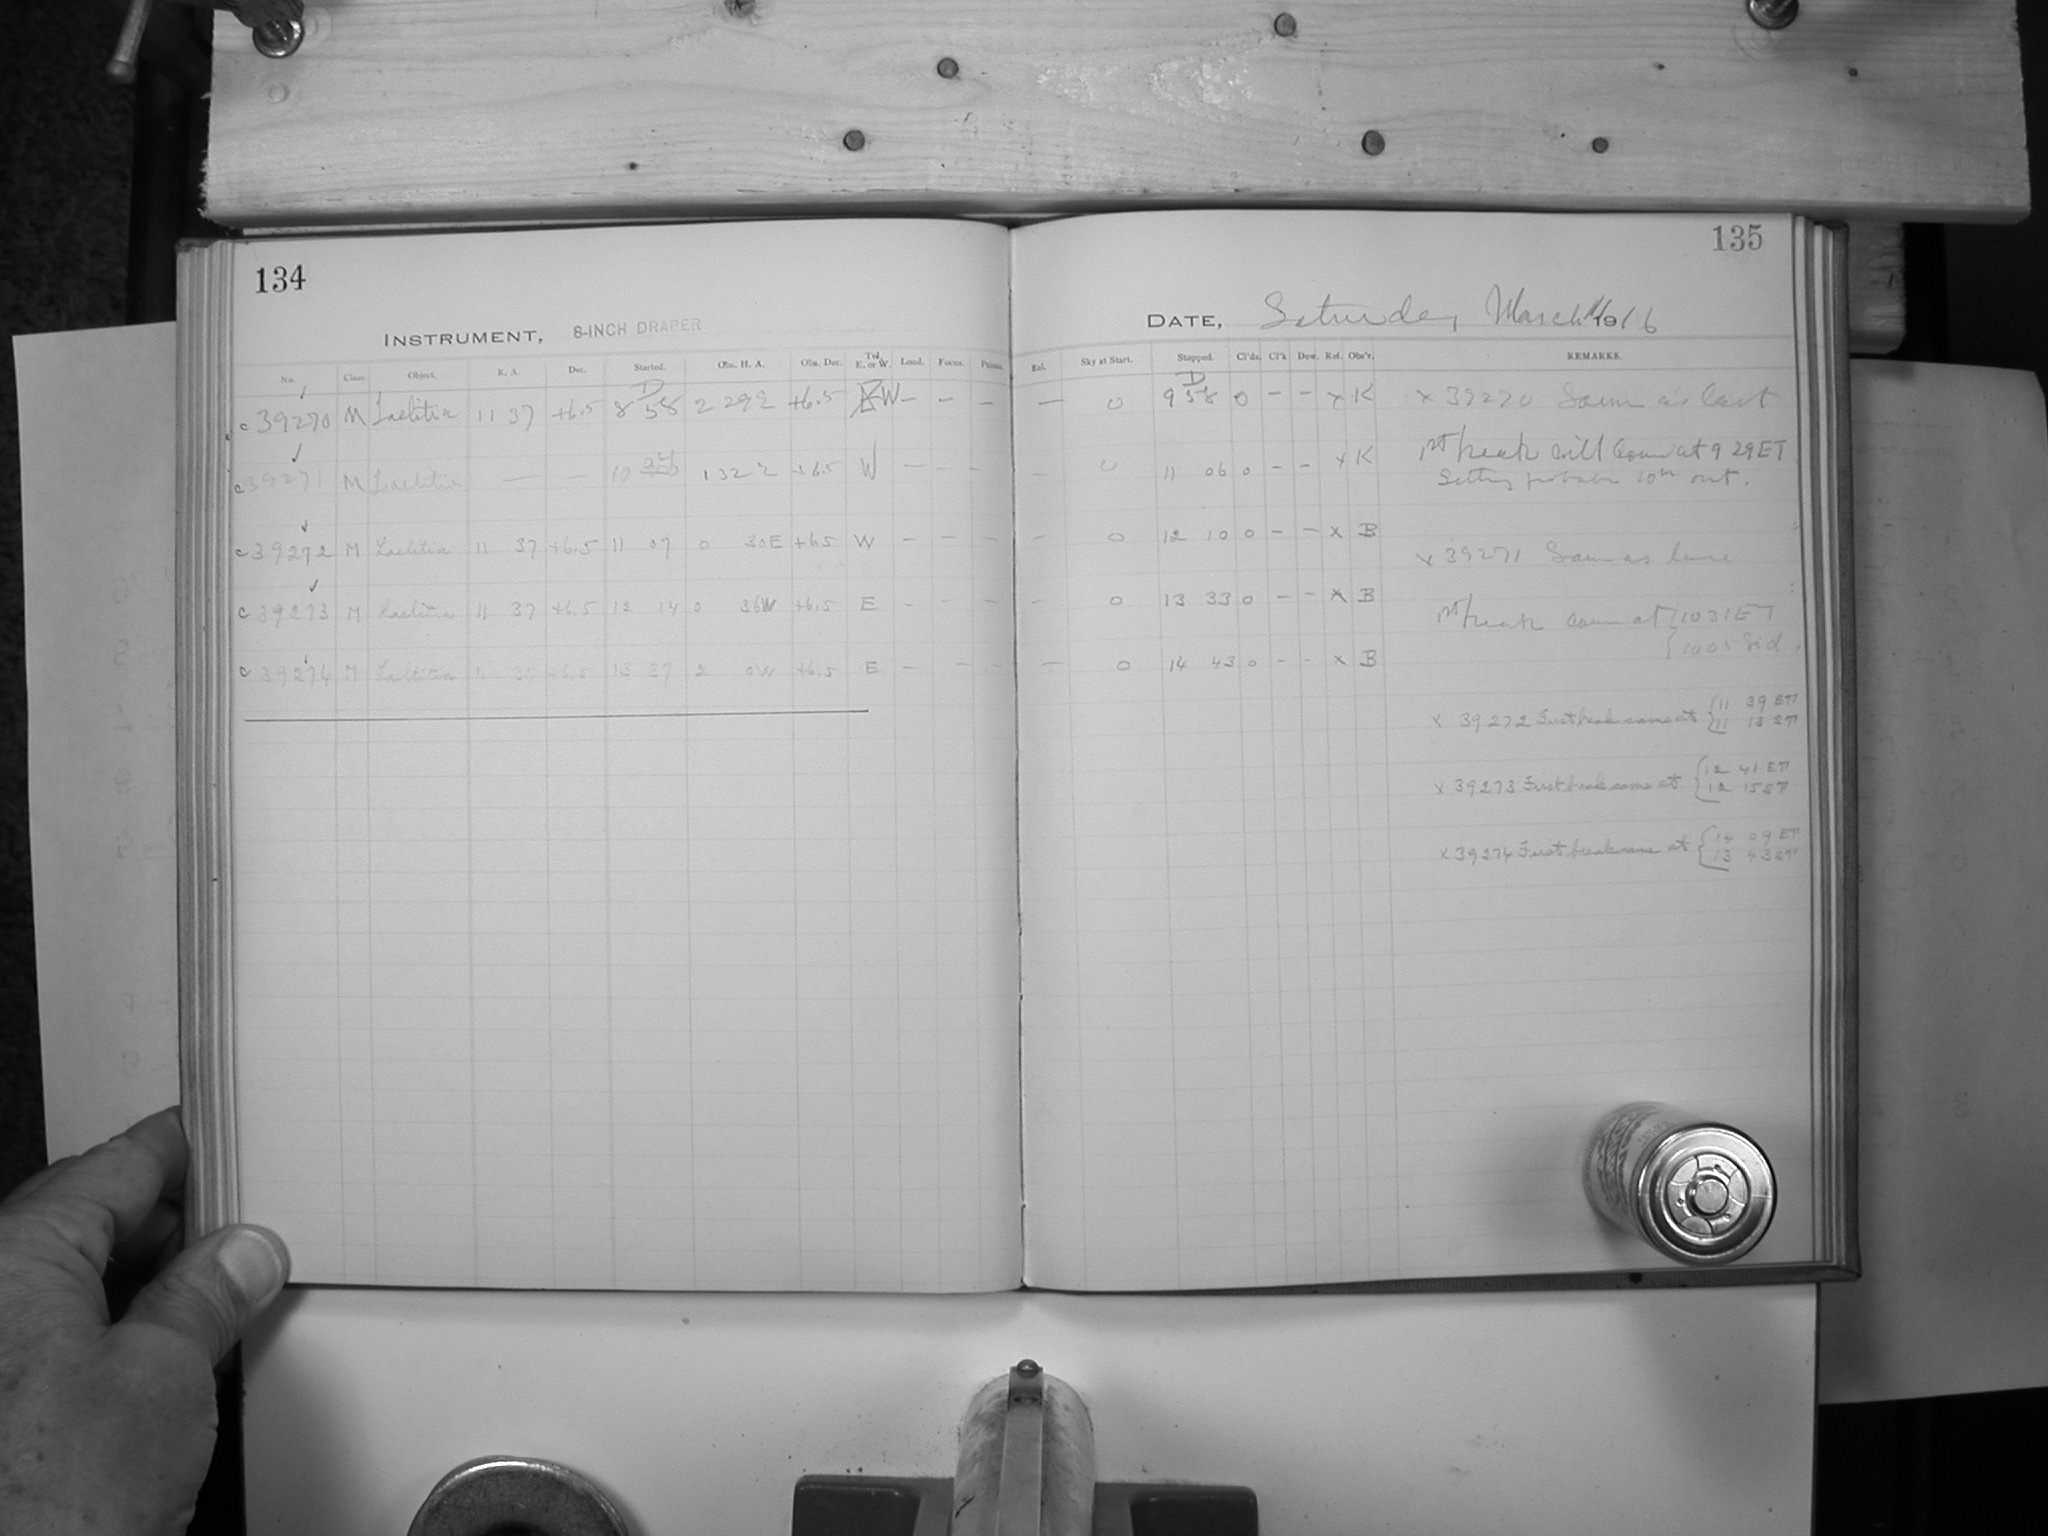 134
135
INSTRUMENT, 8-INCH DRAPER
DATE, Saturday March 11 1916
No. Class. Object. R. A. Dec. Started. Obs. H. A. Obs. Dec. Tel. E. or W. Load. Focus. Prisms.
Eal. Sky at Start. Stopped. Cl'ds. Cl'k Dew. Ref. Obs'r. REMARKS.
c 39270 M Laetitia 11 37 +6.5 8 D 58 2 29E +6.5 W – – – — 0 9 D 58 0 – – x K x 39270 Same as last
1st break will come at 9 29 ET
Setting probably 10m out.
c 39271 M Laetitia — — 10 1 32 +6.5 W – – – – 0 11 06 0 – – x K
c 39272 M Laetitia 11 37 +6.5 11 07 0 30E +6.5 W – – – 0 12 10 0 – – x B
x 39271 Same as
c 39273 M Laetitia 11 37 +6.5 12 14 0 36W +6.5 E – – – — 0 13 33 0 – – x B
1st break came at { 10 31 ET
{ 10 05 Sid.
c 39274 M Laetitia 11 37 +6.5 13 37 2 0W +6.5 E – – – — 0 14 43 0 – – x B
x 39272 First break came at { 11 39 ET
{ 11 13 ST
x 39273 First break came at { 12 41 ET
{ 12 15 ST
x 39274 First break came at { 14 09 ET
{ 13 43 ST